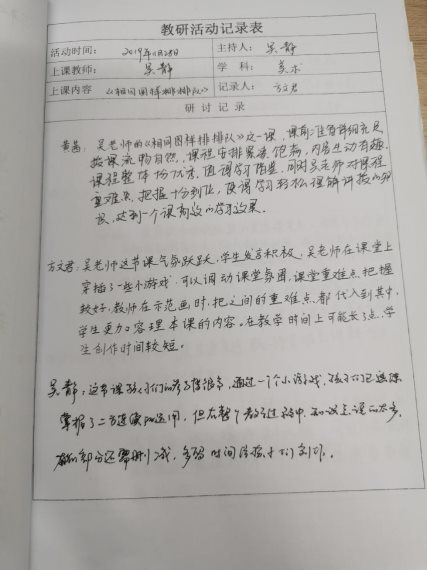 教研活动记录表
活动时间： 2019年11月28日 主持人： 吴静
上课教师： 吴静 学 科： 美术
上课内容 《相同图样排排队》 记录人： 方文君
研 讨 记 录
黄茜：吴老师的《相同图样排排队》这一课，课前准备详细充足
授课流畅自然，课程安排紧凑饱满，内容生动有趣，
课程整体十分优秀，值得学习借鉴，同时吴老师对课程
重难点，把握十分到位，使得学习轻松理解
，达到一个课高效的学习效果。
方文君：吴老师这节课气氛跃跃，学生发言积极，吴老师在课堂上
穿插了一些小游戏，可以调动课堂氛围，课堂重难点把握
较好，教师在示范画时，把之间的重难点都代入到其中，
学生更加容理本课的内容。在教学时间上可能长了点，学
生创作时间较短。
吴静：这节课孩子们的参与度很高，通过一个小游戏，孩子们已经
掌握了二方连续的运用，但在整个教学过程中，知识点说的太多，
有的部分还需删减，多留时间给孩子们创作。